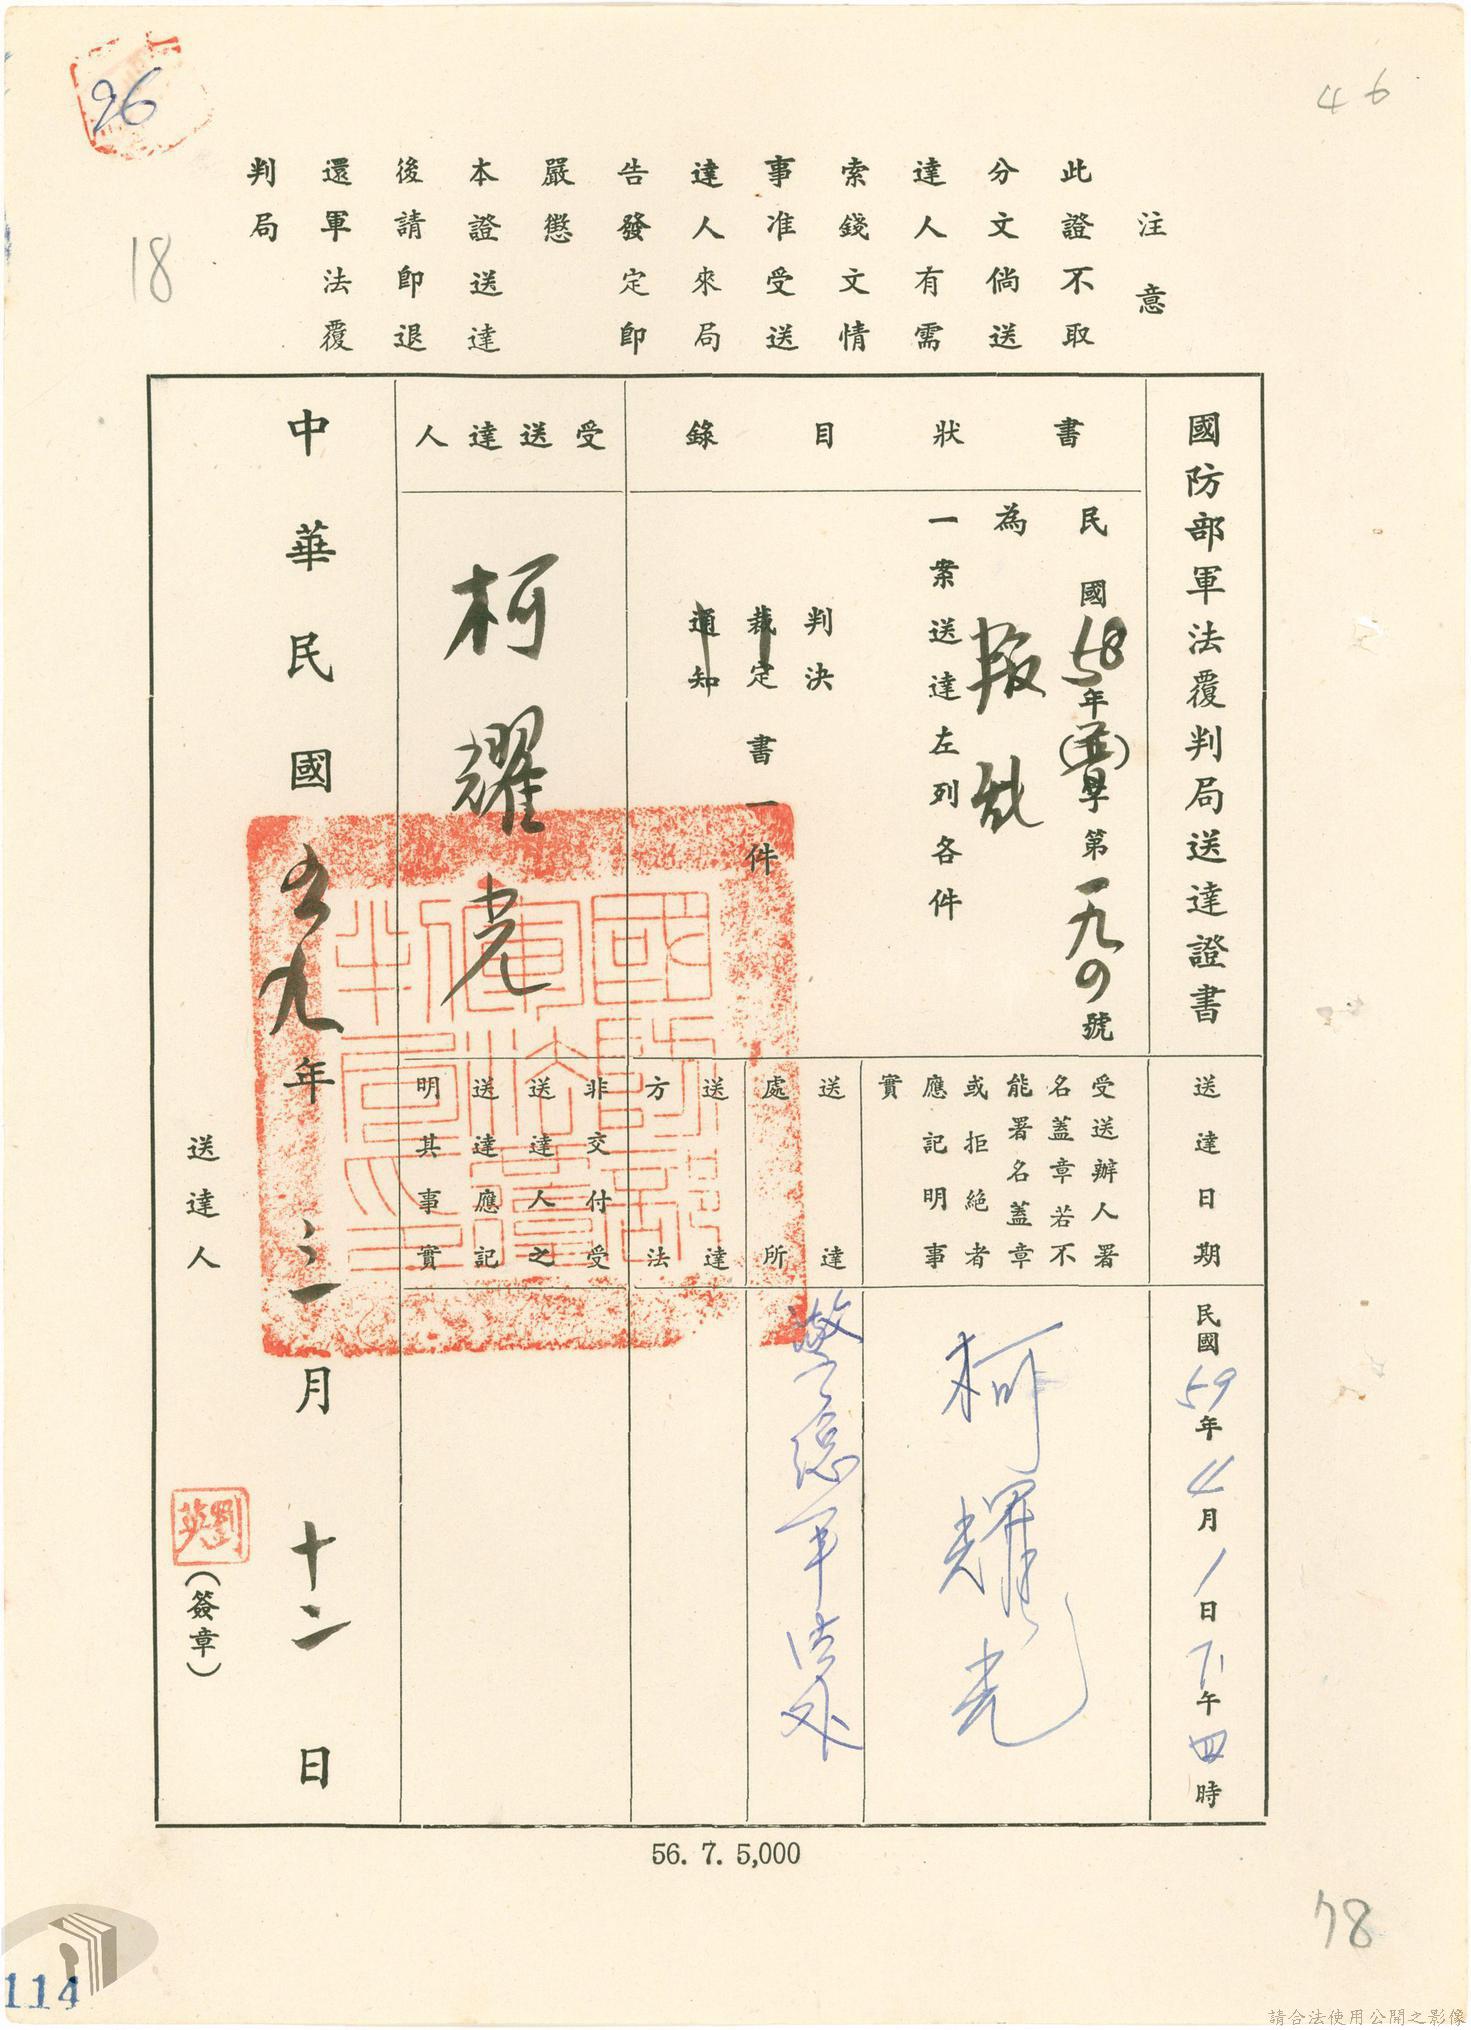 96
46
18
注意
此證不取
分文倘送
達人有需
索錢文情
事准受送
達人來局
告發定即
嚴懲
本證送達
後請即退
還軍法覆
判局
國防部軍法覆判局送達證書
書狀目錄
民國58年()字第一九0號
為叛亂
一案送達左列各件
判決
裁定
通知
書一件
受送達人
柯耀光
送達日期
民國59年4月1日下午四時
受送辦人署
名蓋章若不
能署名蓋章
或拒絕者
應記明事
實
柯耀光
送達
處所
警總軍法處
送達
方法
非交付受
送達人之
送達應記
明其事實
中華民國五九年三月十二日
送達人
劉英
(簽章)
56. 7. 5,000
78
114
請合法使用公開之影像